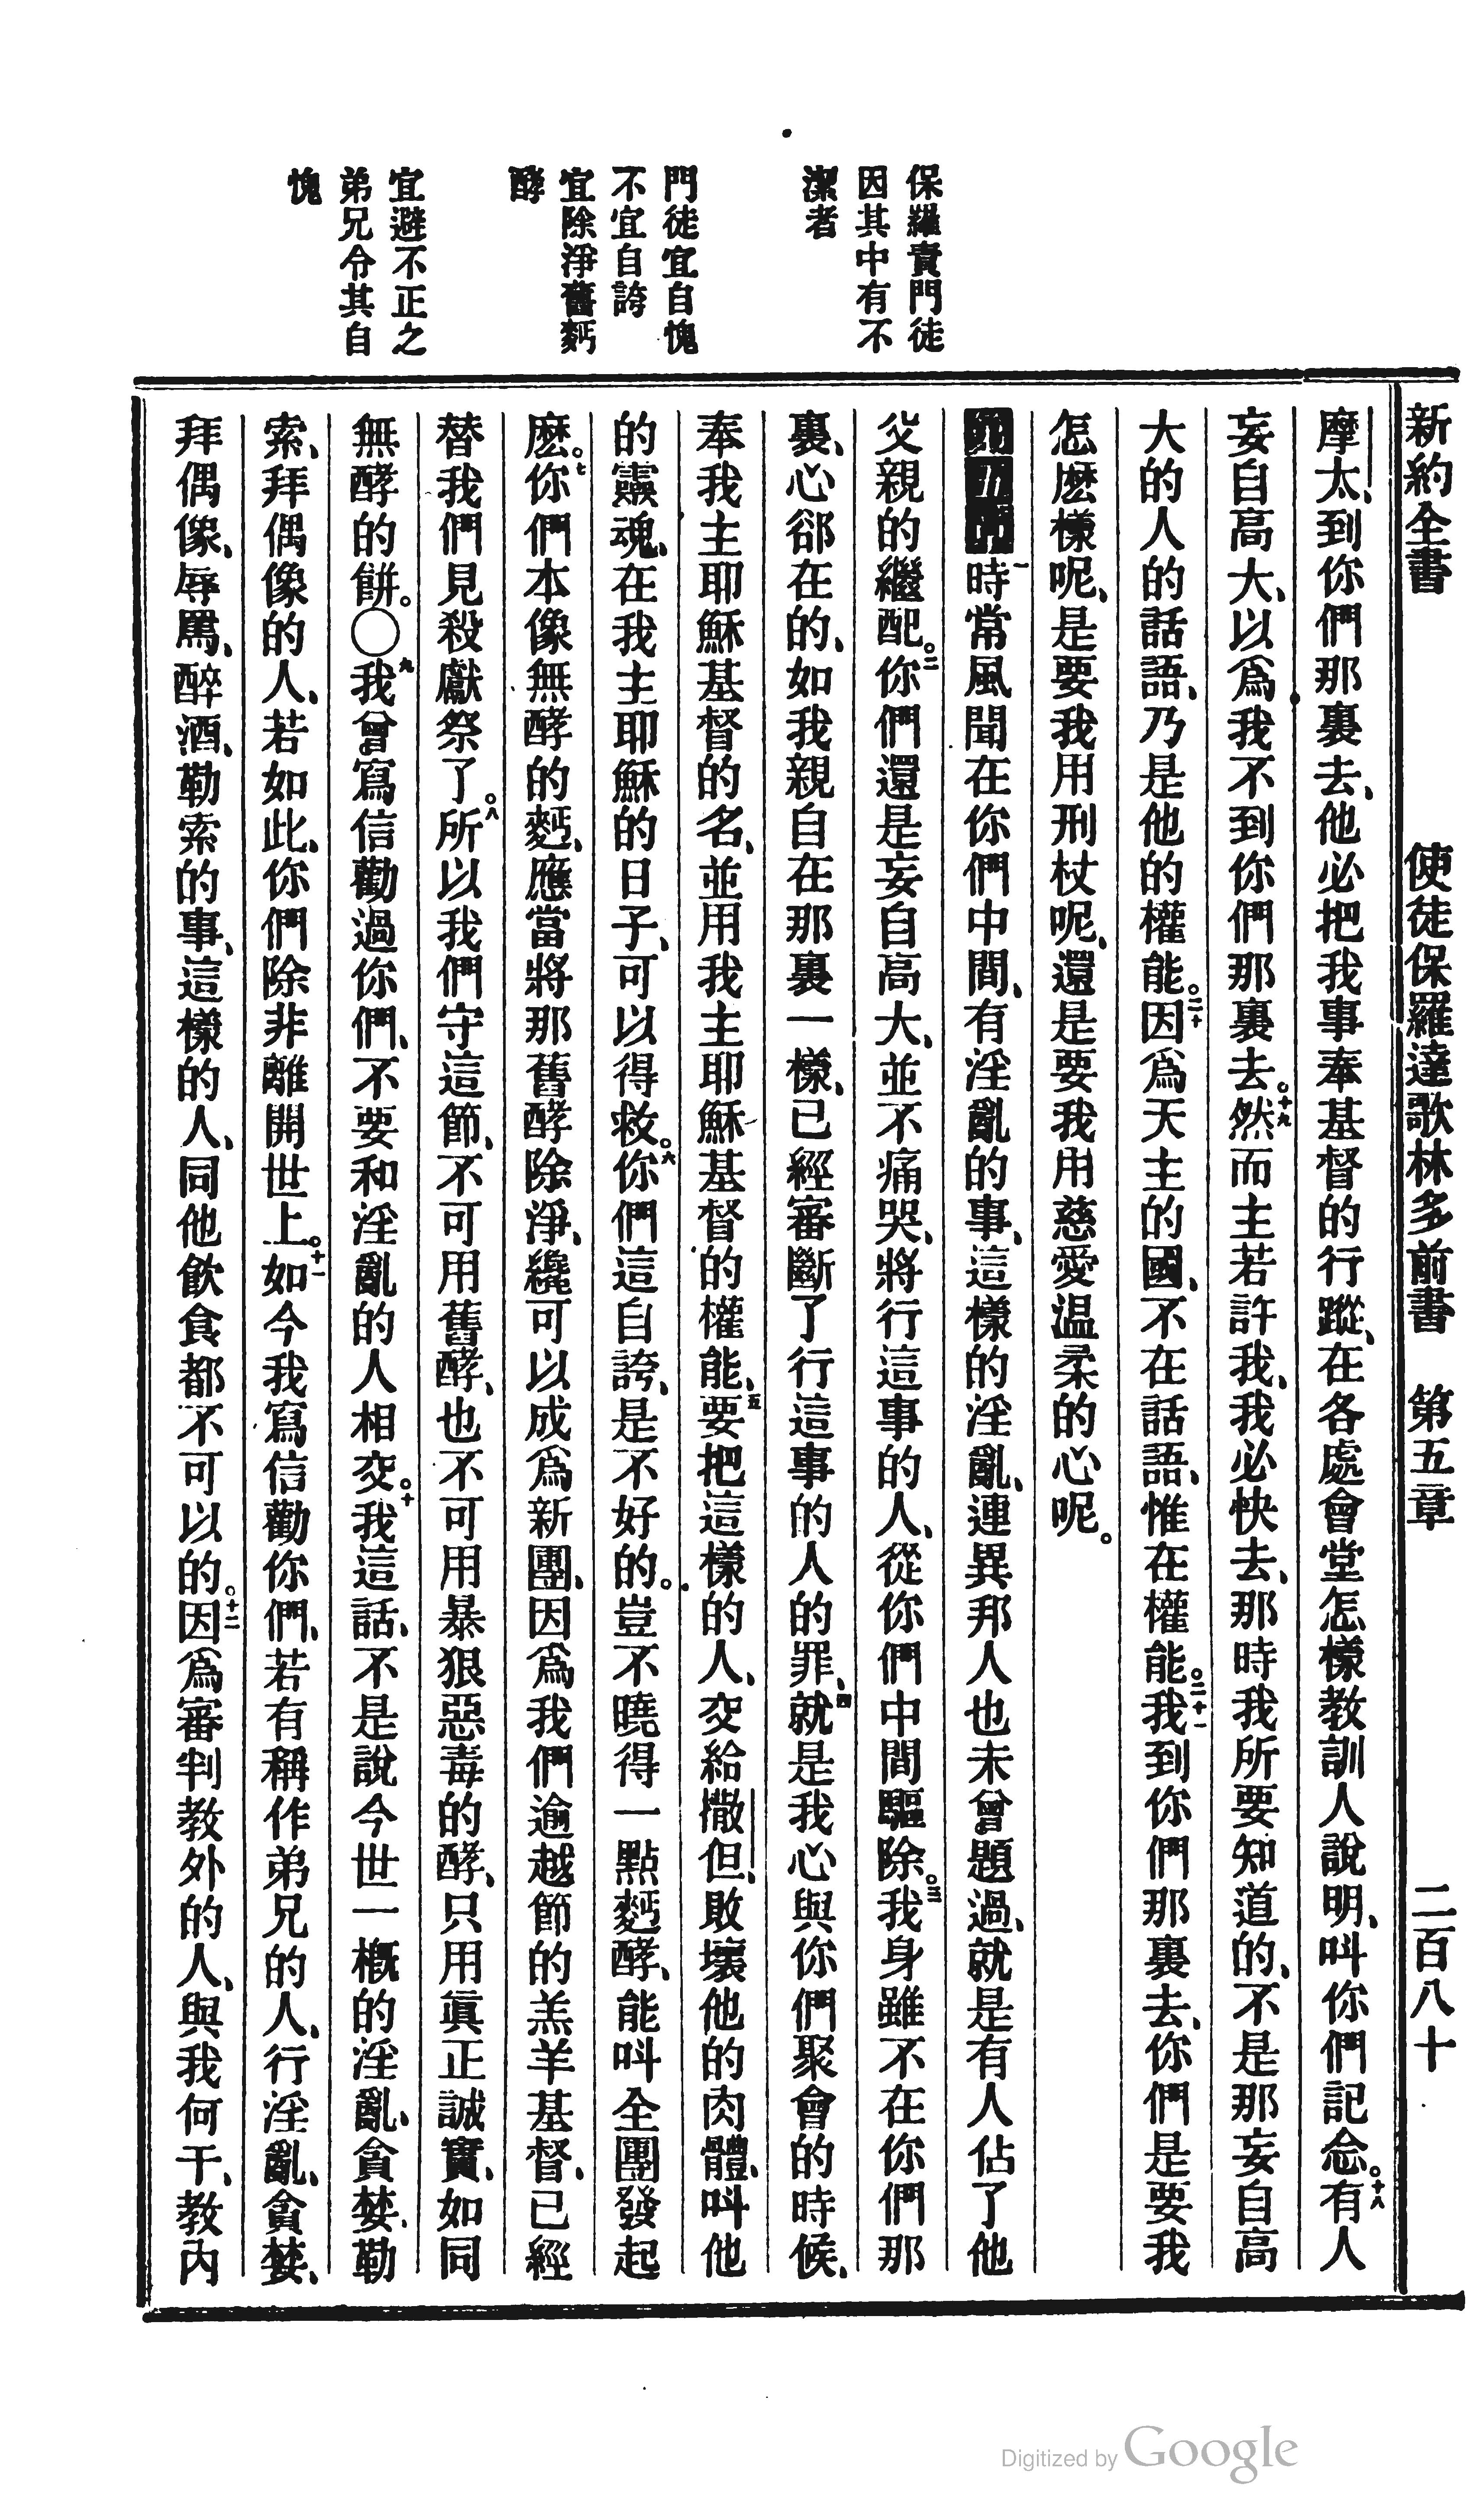 新約全書　使徒保羅達歌林多前書　第五章　二百八十
保羅責門徒
因其中有不
潔者
門徒宜自愧
不宜自誇
宜除淨舊麪
酵
宜避不正之
弟兄令其自
愧
摩太、到你們那裏去、他必把我事奉基督的行蹤、在各處會堂怎樣教訓人說明、呌你們記念。十八有人
妄自高大、以爲我不到你們那裏去。十九然而主若許我、我必快去、那時我所要知道的、不是那妄自高
大的人的話語、乃是他的權能。二十因爲天主的國、不在話語、惟在權能。二十一我到你們那裏去、你們是要我
怎麽樣呢、是要我用刑杖呢、還是要我用慈愛温柔的心呢。
第五章一時常風聞在你們中間、有淫亂的事、這樣的淫亂、連異邦人也未曾題過、就是有人佔了他
父親的繼配。二你們還是妄自高大、並不痛哭、將行這事的人、從你們中間驅除。三我身雖不在你們那
裏、心卻在的、如我親自在那裏一樣、已經審斷了行這事的人的罪、四就是我心與你們聚會的時候、
奉我主耶穌基督的名、並用我主耶穌基督的權能、五要把這樣的人、交給撒但、敗壞他的肉體、呌他
的靈魂、在我主耶穌的日子、可以得救。六你們這自誇、是不好的。豈不曉得一點麪酵、能呌全團發起
麽。七你們本像無酵的麪、應當將那舊酵除淨、纔可以成爲新團、因爲我們逾越節的羔羊基督、已經
替我們見殺獻祭了。八所以我們守這節、不可用舊酵、也不可用暴狠惡毒的酵、只用眞正誠實、如同
無酵的餅。〇九我曾寫信勸過你們、不要和淫亂的人相交。十我這話、不是說今世一槪的淫亂、貪婪、勒
索、拜偶像的人、若如此、你們除非離開世上。十一如今我寫信勸你們、若有稱作弟兄的人、行淫亂、貪婪、
拜偶像、辱罵、醉酒、勒索的事、這樣的人、同他飮食都不可以的。十二因爲審判教外的人、與我何干、教內
Digitized by Google